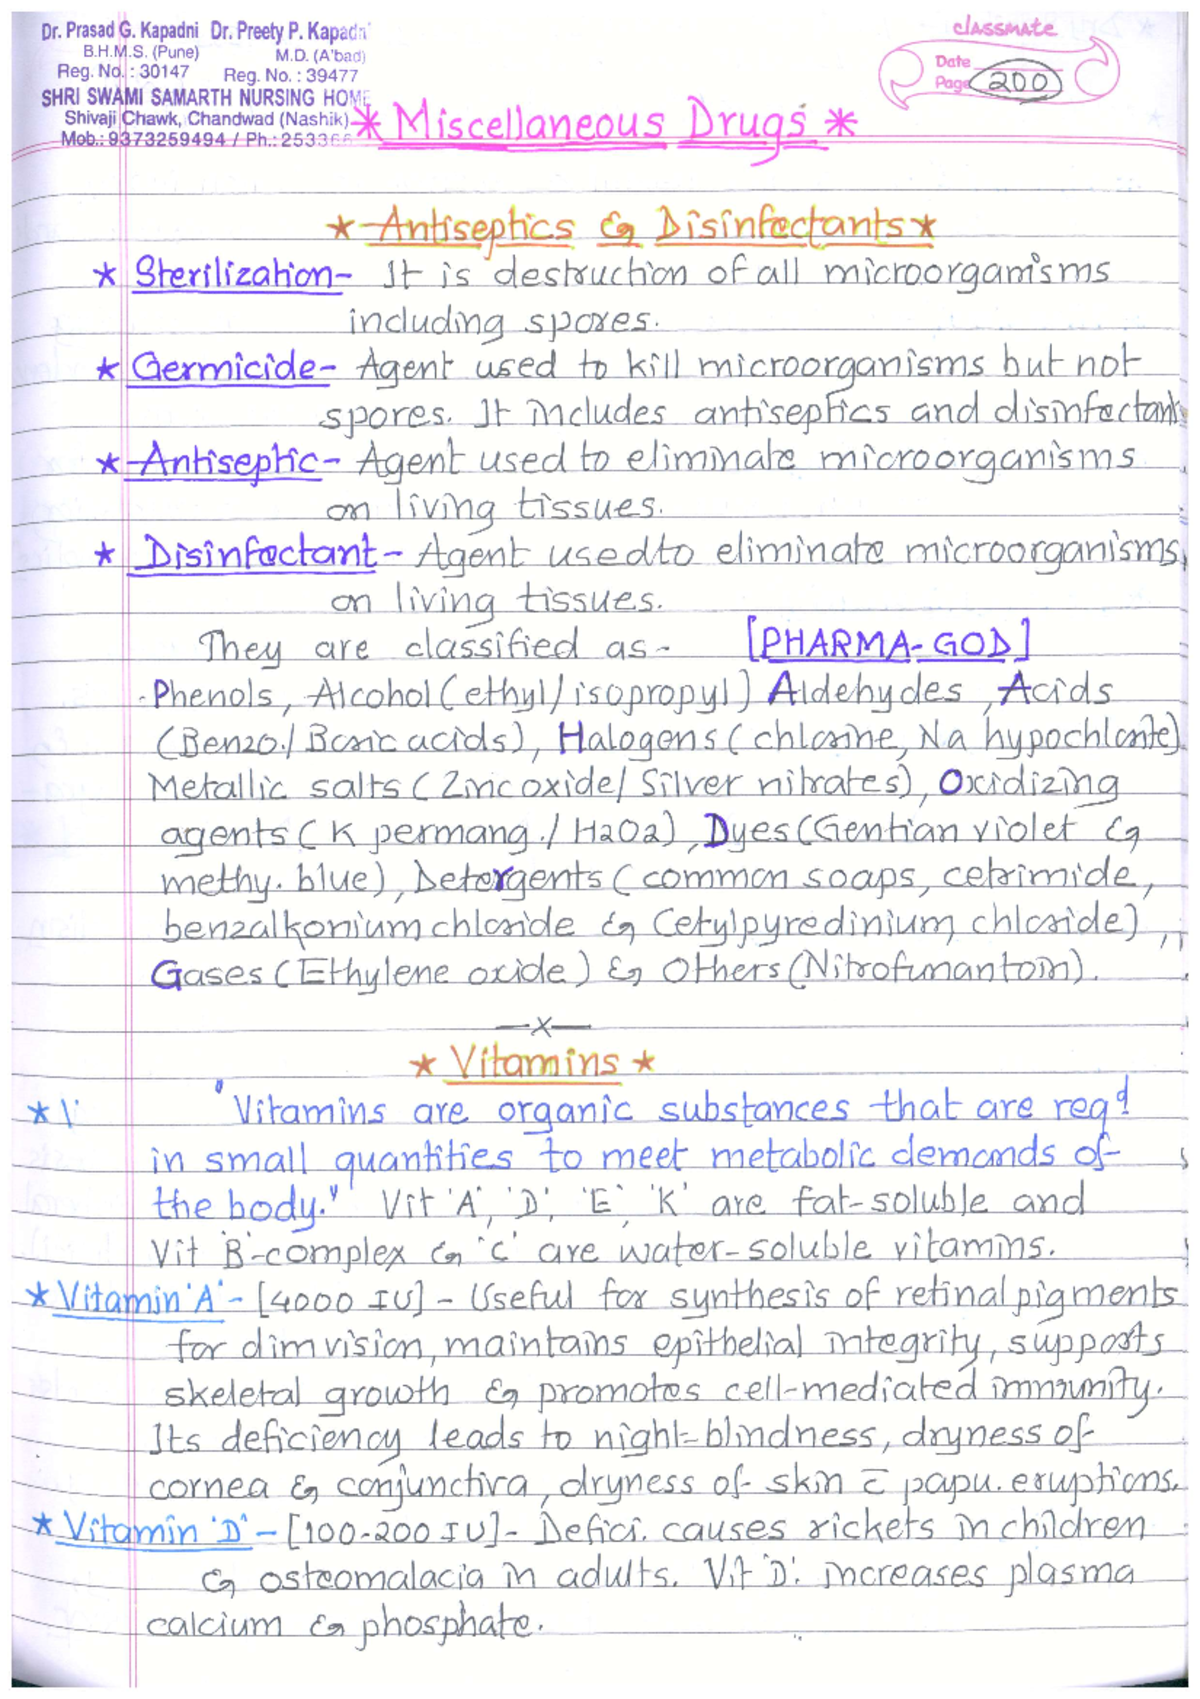 Dr. Prasad G. Kapadni Dr. Preety P. Kapadni
B.H.M.S. (Pune) M.D. (A'bad)
Reg. No. : 30147 Reg. No. : 39477
SHRI SWAMI SAMARTH NURSING HOME
Shivaji Chawk, Chandwad (Nashik)
Mob.: 9373259494 / Ph.: 25336
classmate
Date
Page 200
* Miscellaneous Drugs *
* Antiseptics & Disinfectants *
* Sterilization- It is destruction of all microorganisms
including spores.
* Germicide- Agent used to kill microorganisms but not
spores. It includes antiseptics and disinfectants
* Antiseptic- Agent used to eliminate microorganisms
on living tissues.
* Disinfectant- Agent used to eliminate microorganisms,
on living tissues.
They are classified as- [PHARMA-GOD]
Phenols, Alcohol (ethyl/isopropyl) Aldehydes, Acids
(Benzo./Boric acids), Halogens (chlorine, Na hypochlorite)
Metallic salts (Zinc oxide/Silver nitrates), Oxidizing
agents (K permang./H2O2), Dyes (Gentian violet &
methy. blue), Detergents (common soaps, cetrimide,
benzalkonium chloride & Cetylpyredinium chloride),
Gases (Ethylene oxide) & Others (Nitrofurantoin).
—x—
* Vitamins *
* V "Vitamins are organic substances that are reqd
in small quantities to meet metabolic demands of
the body." Vit 'A', 'D', 'E', 'K' are fat-soluble and
Vit 'B'-complex & 'C' are water-soluble vitamins.
* Vitamin 'A' - [4000 IU] - Useful for synthesis of retinal pigments
for dim vision, maintains epithelial integrity, supports
skeletal growth & promotes cell-mediated immunity.
Its deficiency leads to night-blindness, dryness of
cornea & conjunctiva, dryness of skin c̄ papu. eruptions.
* Vitamin 'D' - [100-200 IU]- Defici. causes rickets in children
& osteomalacia in adults. Vit 'D'. increases plasma
calcium & phosphate.